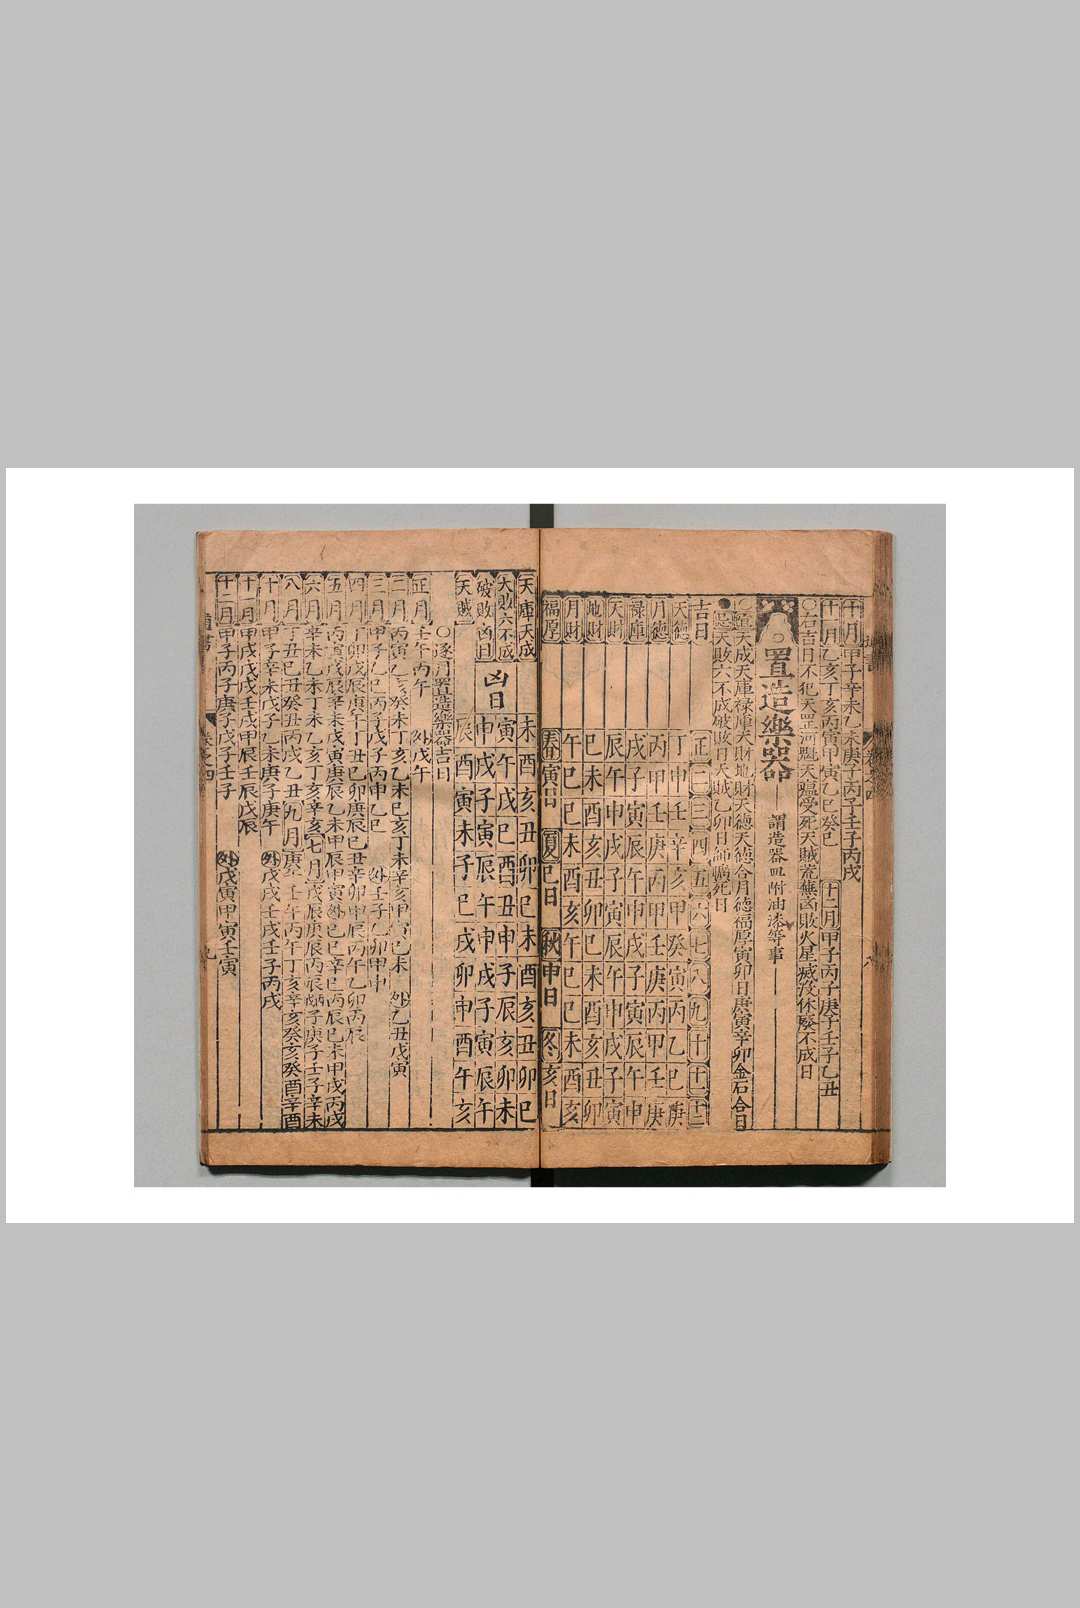 十月甲子辛未乙未庚子丙子壬子丙戌
十一月乙亥丁亥丙寅甲寅乙巳癸巳 十二月甲子丙子庚子壬子乙丑
○右吉月不犯天罡河魁天瘟受死天賊荒蕪凶敗火星滅沒休廢不成日
置造樂器 謂造器皿附油漆等事
天成天庫祿庫天財地財天德天德合月德福厚寅卯日庚寅辛卯金石合日
忌天敗六不成破敗日天賊乙卯日師曠死日
吉日 正 二 三 四 五 六 七 八 九 十 十一 十二
天德 丁申壬辛亥甲癸寅丙乙巳庚
月德 丙甲壬庚丙甲壬庚丙甲壬庚
祿庫 戌子寅辰午申戌子寅辰午申
天財 辰午申戌子寅辰午申戌子寅
地財 巳未酉亥丑卯巳未酉亥丑卯
月財 午巳巳未酉亥午巳巳未酉亥
福厚 春寅日 夏巳日 秋申日 冬亥日
天庫天成 未酉亥丑卯巳未酉亥丑卯巳
大敗六不成 寅午戌巳酉丑申子辰亥卯未
破敗凶日 凶日 申戌子寅辰午申戌子寅辰午
天賊 辰酉寅未子巳戌卯申丑午亥
○逐月置造樂器吉日
正月 壬午丙午 外戊午
二月 丙寅乙亥癸未丁亥乙未己亥丁未辛亥甲寅己未 外乙丑戊寅
三月 甲子乙巳丙子戊子丙申乙巳 外壬子乙卯甲申
四月 丁卯戊辰庚午丁丑己卯庚辰己丑辛卯甲辰丙午乙卯丙辰
六月 辛未乙未丁未乙亥丁亥辛亥 七月戊辰庚辰丙辰丙子庚子壬子辛未
八月 丁丑巳丑癸丑丙戌乙丑 九月庚午壬午丙午丁亥辛亥癸亥癸酉辛酉
十月 甲子辛未戊子乙未庚子庚午 外戊戌壬戌壬子丙戌
十一月 甲戌戊戌壬戌甲辰壬辰戊辰
十二月 甲子丙子庚子戊子壬子 外戊寅甲寅壬寅